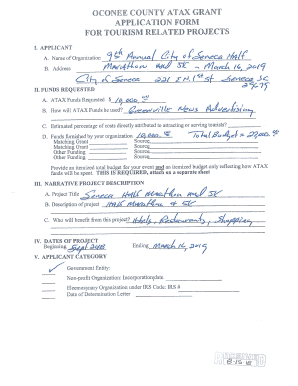 OCONEE COUNTY ATAX GRANT
APPLICATION FORM
FOR TOURISM RELATED PROJECTS
I. APPLICANT
A. Name of Organization 9th Annual City of Seneca Half
B. Address Marathon and 5K - March 16, 2019
City of Seneca 221 E.N. 1st St Seneca SC
29678
II. FUNDS REQUESTED
A. ATAX Funds Requested $ 10,000
B. How will ATAX Funds be used? Greenville News Advertising
C. Estimated percentage of costs directly attributed to attracting or serving tourists?
D. Funds furnished by your organization 10,000 Total Budget =
Matching Grant Source
Matching Grant Source
Other Funding Source
Other Funding Source
Provide an itemized total budget for your event and an itemized budget only reflecting how ATAX
funds will be spent. THIS IS REQUIRED, attach on a separate sheet
III. NARRATIVE PROJECT DESCRIPTION
A. Project Title Seneca Half Marathon and 5K
B. Description of project Half Marathon & 5K
C. Who will benefit from this project? Hotels, Restaurants, Shopping
IV. DATES OF PROJECT
Beginning Sept 2018 Ending March 16, 2019
V. APPLICANT CATEGORY
✓ Government Entity:
Non-profit Organization: Incorporation date
Eleemosynary Organization under IRS Code: IRS #
Date of Determination Letter
8-15-18